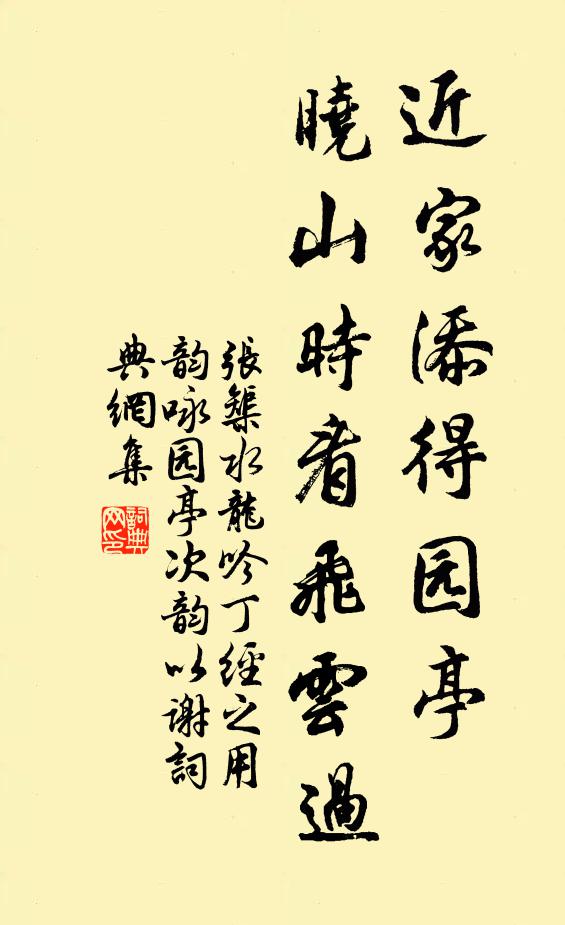 近家添得园亭
曉山時看飛雲過
張榘水龍吟丁經之用
韵咏园亭次韵以谢詞
典網集
詞典
网印